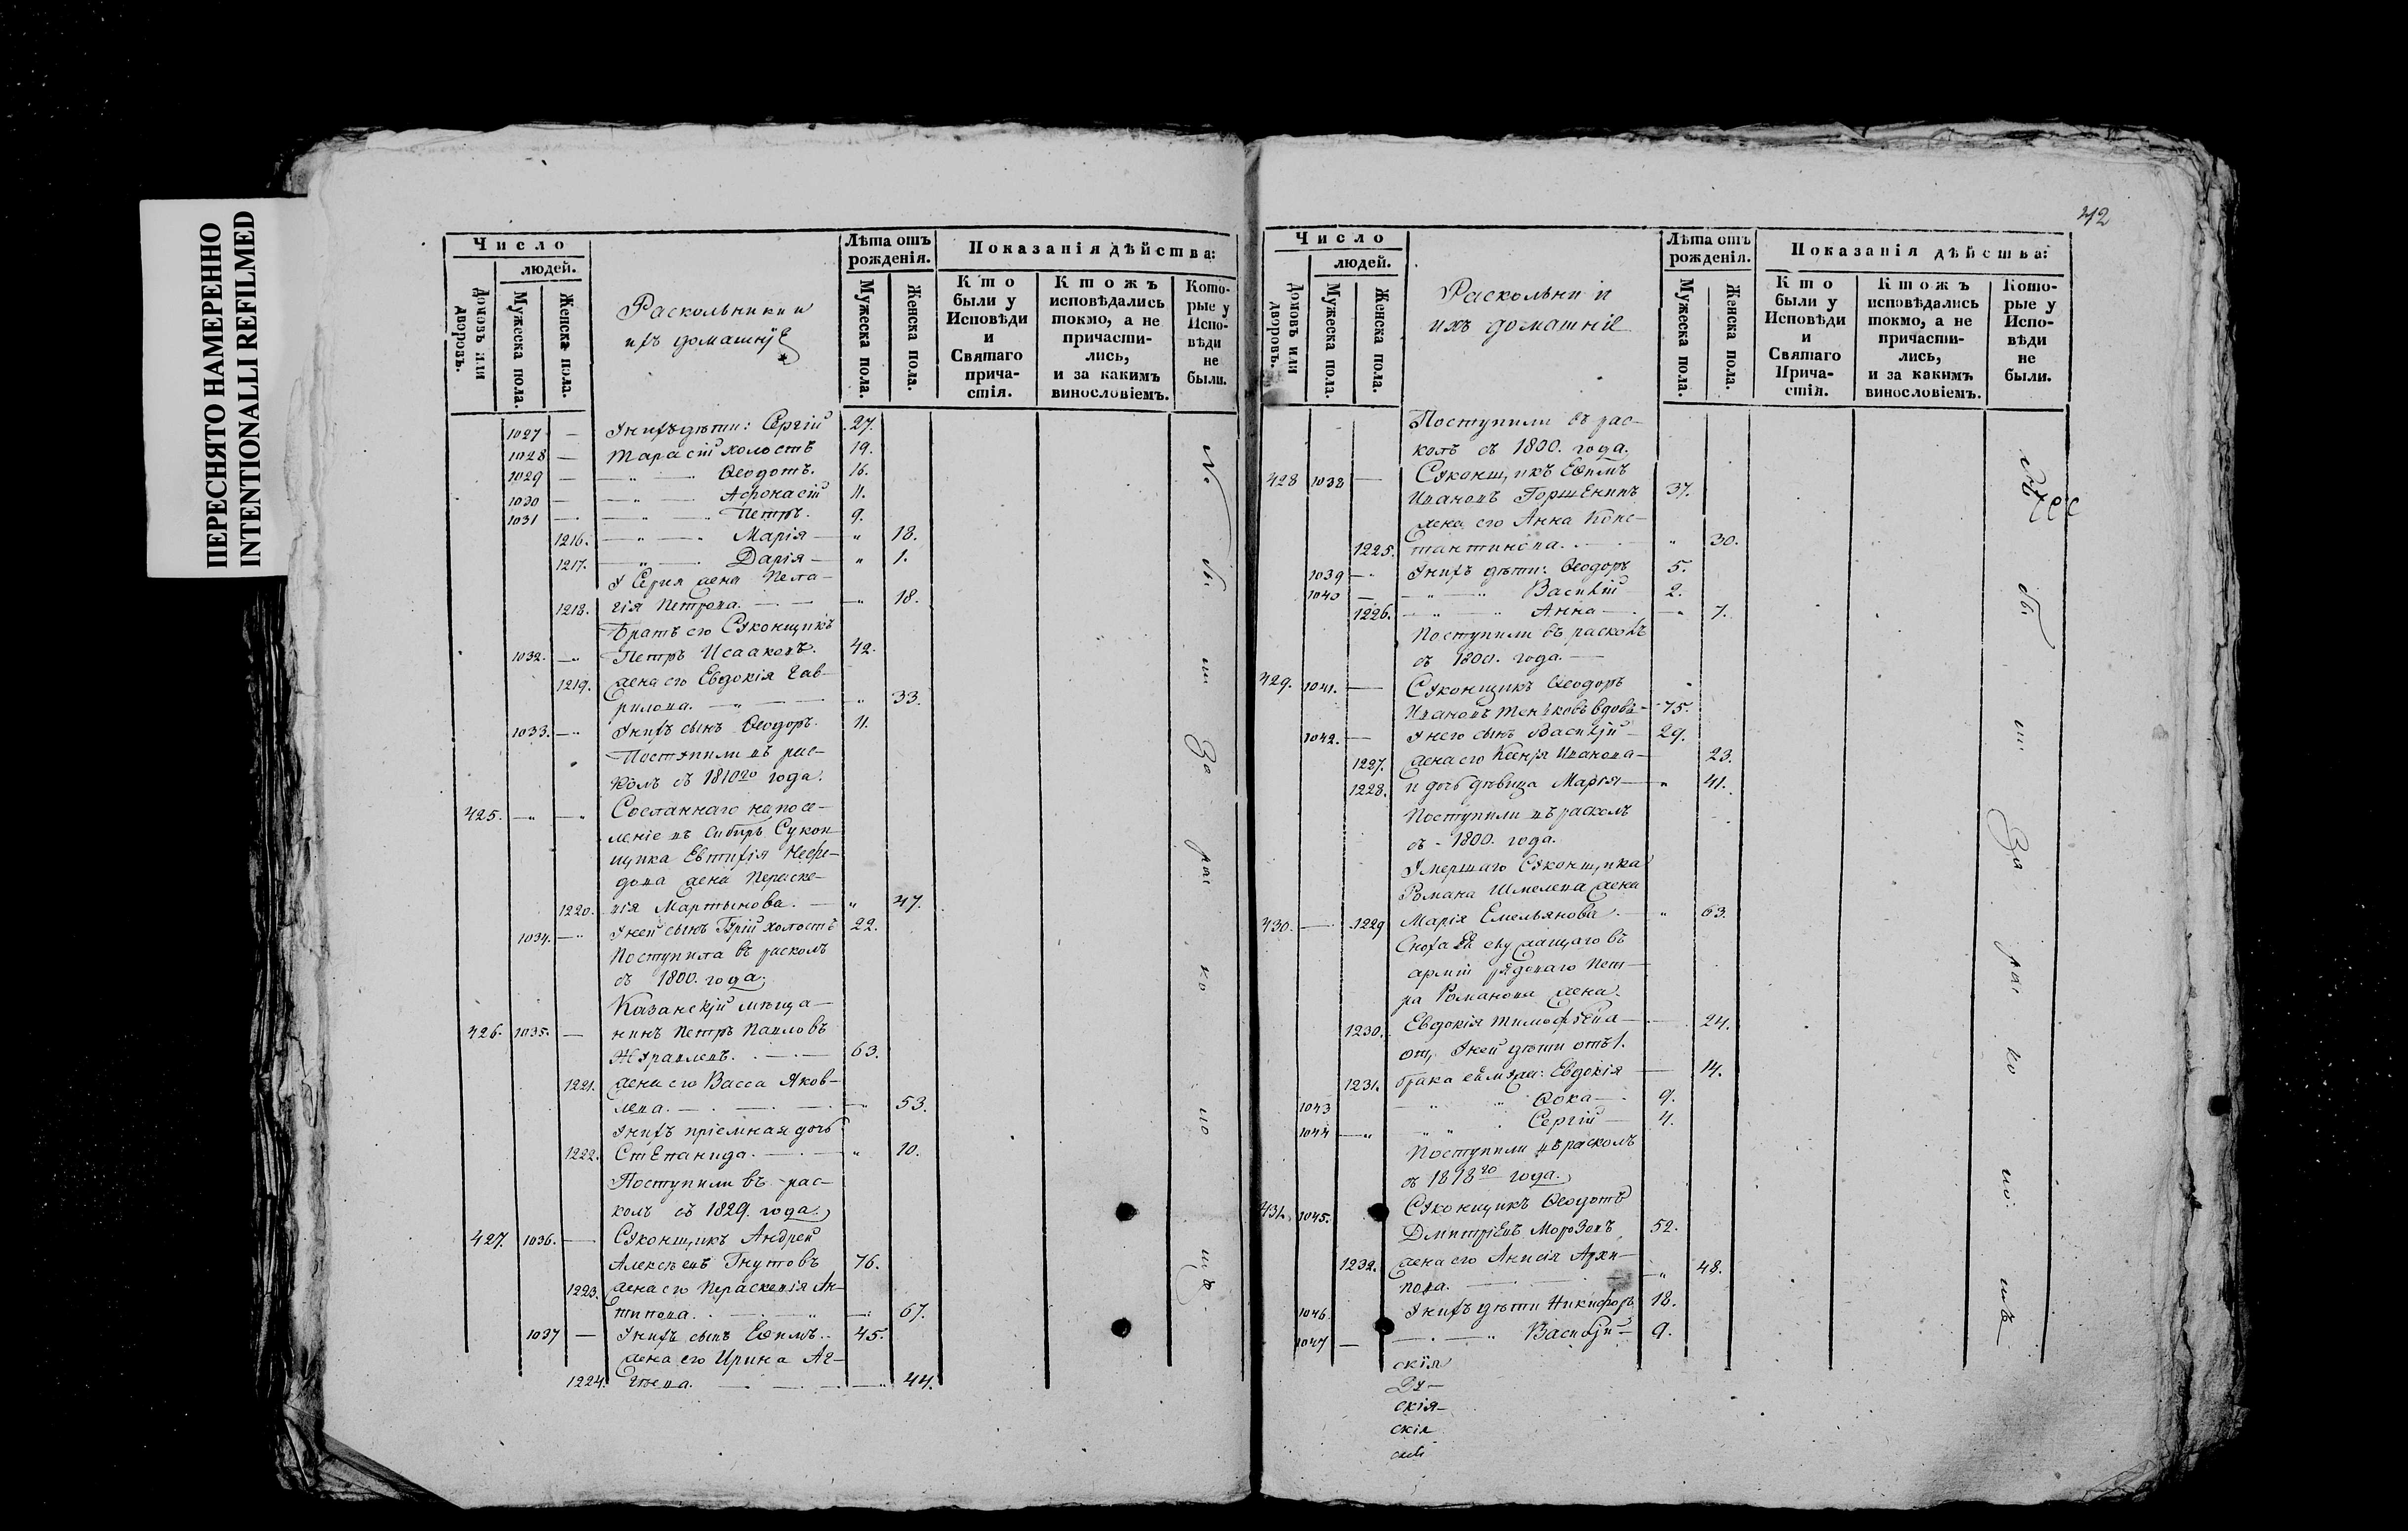 ПЕРЕСНЯТО НАМЕРЕННО
INTENTIONALLI REFILMED
Число
людей.
Домовъ или дворовъ.
Мужеска пола.
Женска пола.
Раскольники и
ихъ домашніе
Лѣта отъ рожденія.
Мужеска пола.
Женска пола.
Показанія дѣйства:
Кто были у Исповѣди и Святаго причастія.
Ктожъ исповѣдались токмо, а не причастились, и за какимъ винословіемъ.
Которые у Исповѣди не были.
1027 — У нихъ дѣти: Сергій 27.
1028 — Тарасій холостъ 19.
1029 — — „ — Ѳеодотъ. 16.
1030 — — „ — Афонасій 11.
1031 — — „ — Петръ. 9.
1216. — „ — „ Марія — „ 18.
1217. — „ — Дарія — „ 1.
У Сергія жена Пела-
1218. гія Петрова. — — 18.
Братъ его Суконщикъ
1032. — Петръ Исааковъ. 42.
1219. жена его Евдокія Гав-
рилова. — „ — „ 33.
1033. — У нихъ сынъ Ѳеодоръ. 11.
Поступили въ рас-
колъ съ 1810го года.
425. — „ — „ Сосланнаго на посе-
леніе въ Сибирь Сукон-
щика Евтихія Нефе-
дова жена Параске-
1220. вія Мартынова. — „ 47.
1034. — У ней сынъ Гурій холостъ 22.
Поступила въ расколъ
съ 1800. года.
Казанскій мѣща-
426. 1035. — нинъ Петръ Павловъ
Журавлевъ. — 63.
1221. жена его Васса Яков-
лева. — — 53.
У нихъ пріемная дочь
1222. Степанида. — „ 10.
Поступили въ рас-
колъ съ 1829. года.
427. 1036. — Суконщикъ Андрей
Алексѣевъ Гнутовъ 76.
1223. жена его Параскевія Ан-
типова. — „ — 67.
1037 — У нихъ сынъ Ефимъ. 45.
жена его Ирина Аг-
1224. гѣева. — — 44.
Не бы ли за рас ко ло мъ.
412
Число
людей.
Домовъ или дворовъ.
Мужеска пола.
Женска пола.
Раскольни и
ихъ домашніе
Лѣта отъ рожденія.
Мужеска пола.
Женска пола.
Показанія дѣйства:
Кто были у Исповѣди и Святаго Причастія.
Ктожъ исповѣдались токмо, а не причастились, и за какимъ винословіемъ.
Которые у Исповѣди не были.
Поступили въ рас-
колъ съ 1800. года.
428 1038 — Суконщикъ Ефимъ
Ивановъ Горшенинъ 37.
жена его Анна Конс-
1225. тантинова. — „ 30.
1039 — У нихъ дѣти: Ѳеодоръ 5.
1040 — — „ — Василій 2.
1226. — „ — „ Анна — „ 7.
Поступили въ расколъ
съ 1800. года. —
429. 1041. — Суконщикъ Ѳеодоръ
Ивановъ Теньковъ вдовъ — 75.
1042. — У него сынъ Василій — 29.
1227. жена его Ксенія Иванова — 23.
1228. и дочь дѣвица Марія — „ 41.
Поступили въ расколъ
съ 1800. года.
Умершаго Суконщика
Романа Шмелева жена
430. — 1229 Марія Емельянова. — „ 63.
Сноха ея служащаго въ
арміи рядоваго Пет-
ра Романова жена
1230. Евдокія Тимофѣева — 24.
У ней дѣти отъ 1.
1231. брака Евдокія — 14.
1043 — „ „ Ѳока — 9.
1044 — „ „ „ Сергій — 4.
Поступили въ расколъ
съ 1818го года.
431. 1045. Суконщикъ Ѳеодотъ
Дмитріевъ Морозовъ 52.
1232. жена его Анисія Архи-
пова. — „ 48.
1046 У нихъ дѣти Никифоръ 18.
1047 — — „ Василій — 9.
скія
Ду-
скія-
скія
за рас ко ло мъ